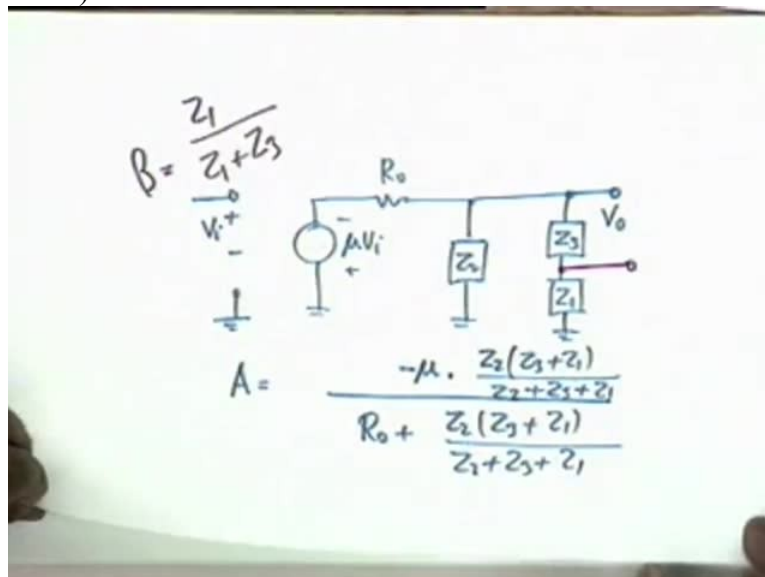 β = Z1 / (Z1 + Z3)
R0
Vi + -
- μVi +
Z2
Z3
V0
Z1
A = (-μ . Z2(Z3+Z1) / (Z2+Z3+Z1)) / (R0 + Z2(Z3+Z1) / (Z2+Z3+Z1))